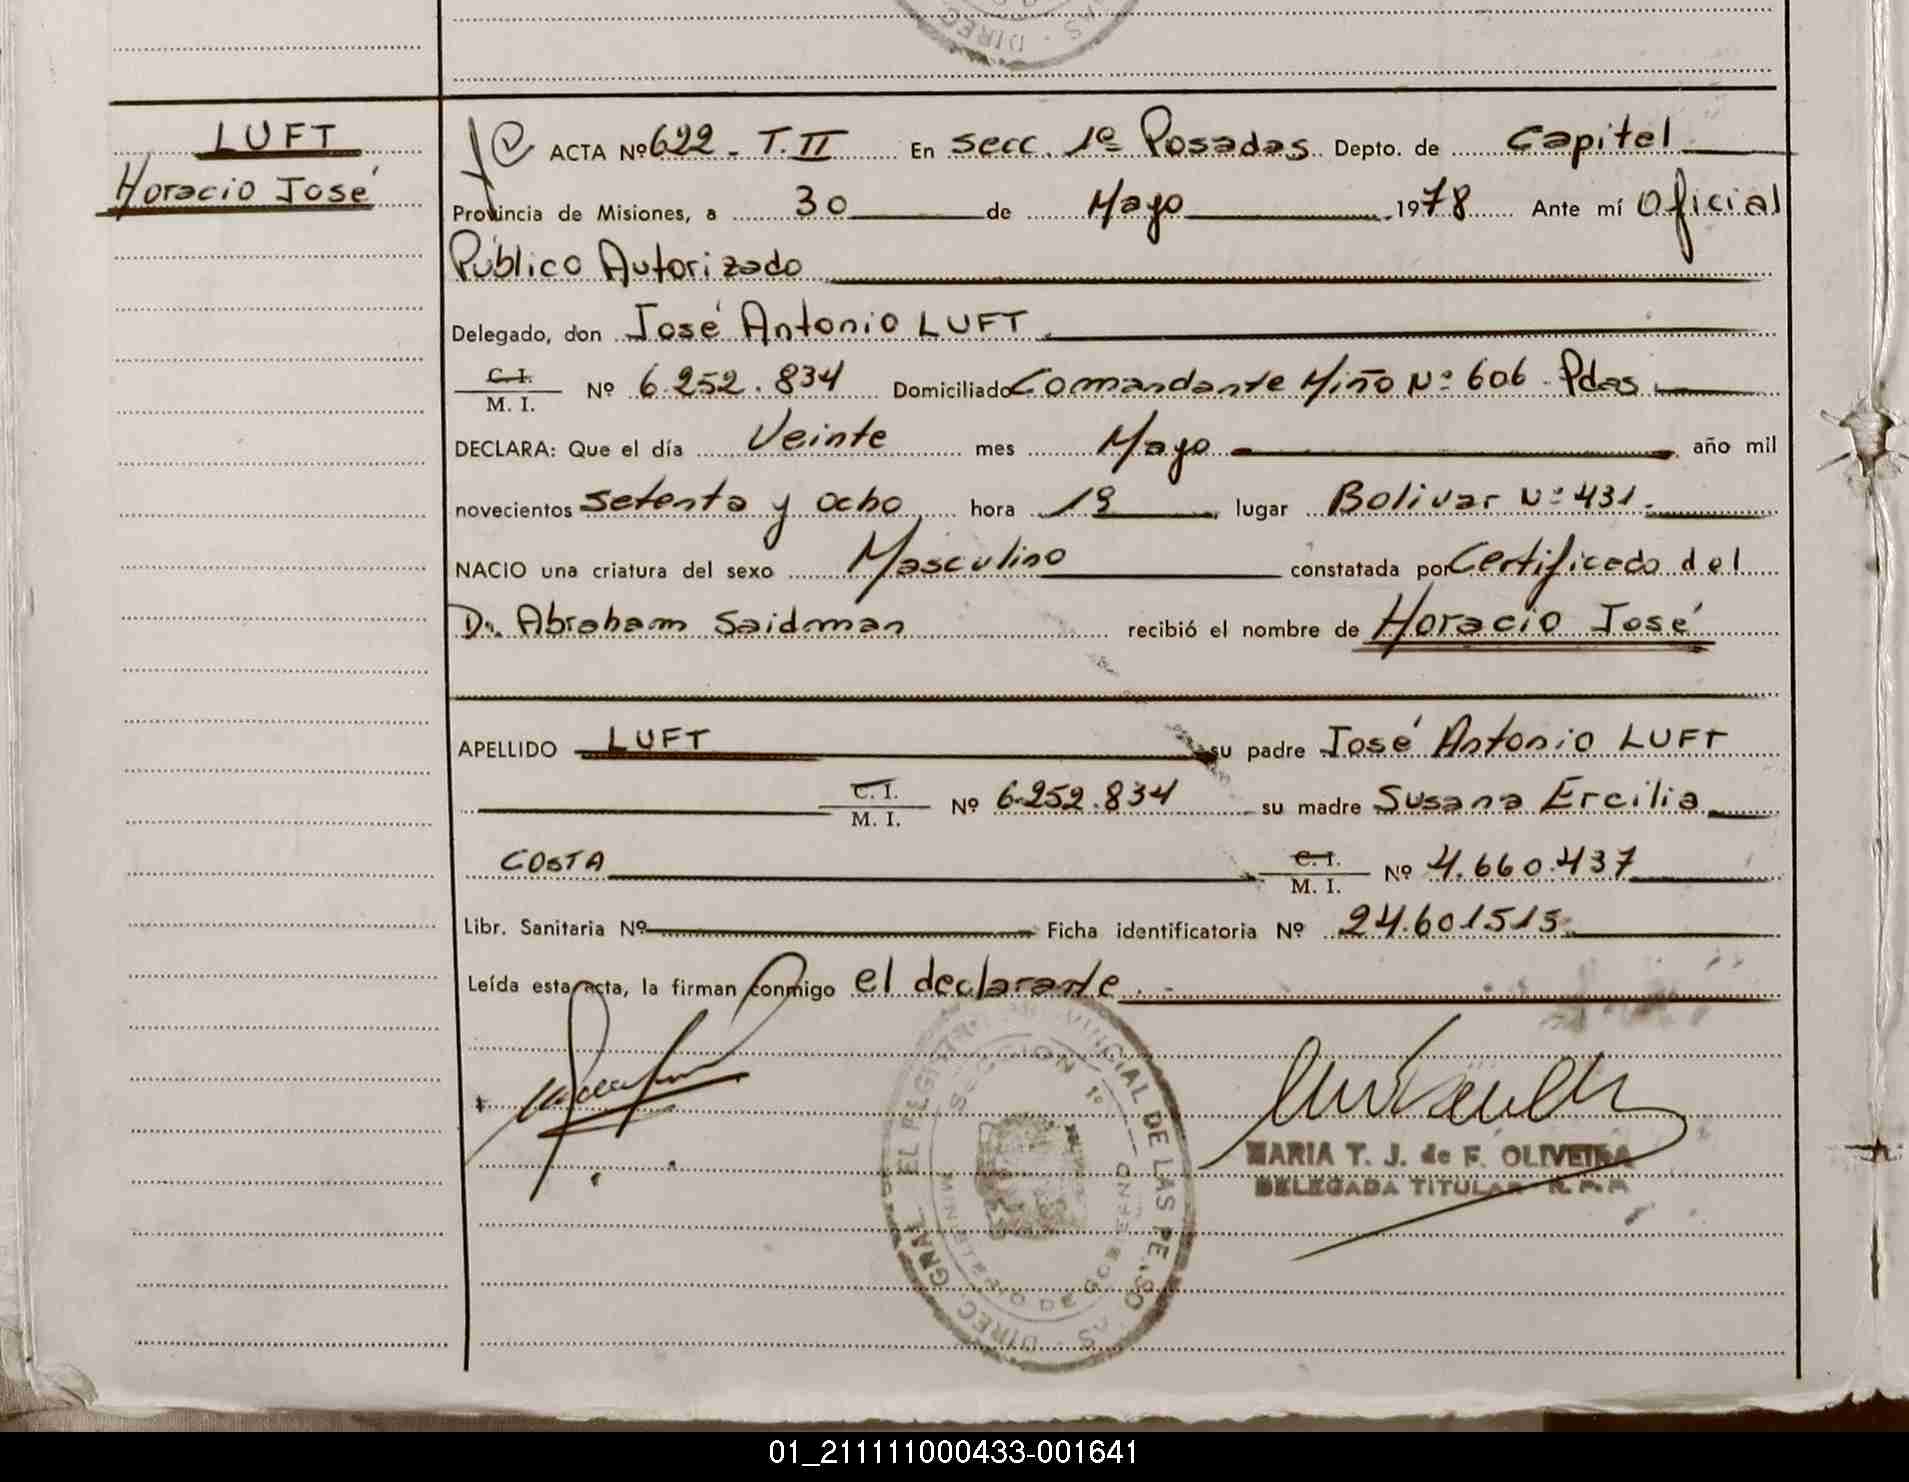 LUFT
Horacio José
ACTA Nº 622 - T. II En secc. 1ª Posadas Depto. de Capital
Provincia de Misiones, a 30 de Mayo 1978 Ante mí Oficial
Público Autorizado
Delegado, don José Antonio LUFT
C. I.
M. I. Nº 6.252.834 Domiciliado Comandante Miño Nº 606 - Pdas.
DECLARA: Que el día Veinte mes Mayo año mil
novecientos setenta y ocho hora 19 lugar Bolivar Nº 431.
NACIO una criatura del sexo Masculino constatada por Certificado del
Dr. Abraham Saidman recibió el nombre de Horacio José
APELLIDO LUFT su padre José Antonio LUFT
C. I.
M. I. Nº 6.252.834 su madre Susana Ercilia
COSTA
C. I.
M. I. Nº 4.660.437
Libr. Sanitaria Nº Ficha identificatoria Nº 24.601515
Leída esta acta, la firman conmigo el declarante . -
SECCION 1º
MARIA T. J. de F. OLIVEIRA
DELEGADA TITULAR R. P. P.
01_211111000433-001641